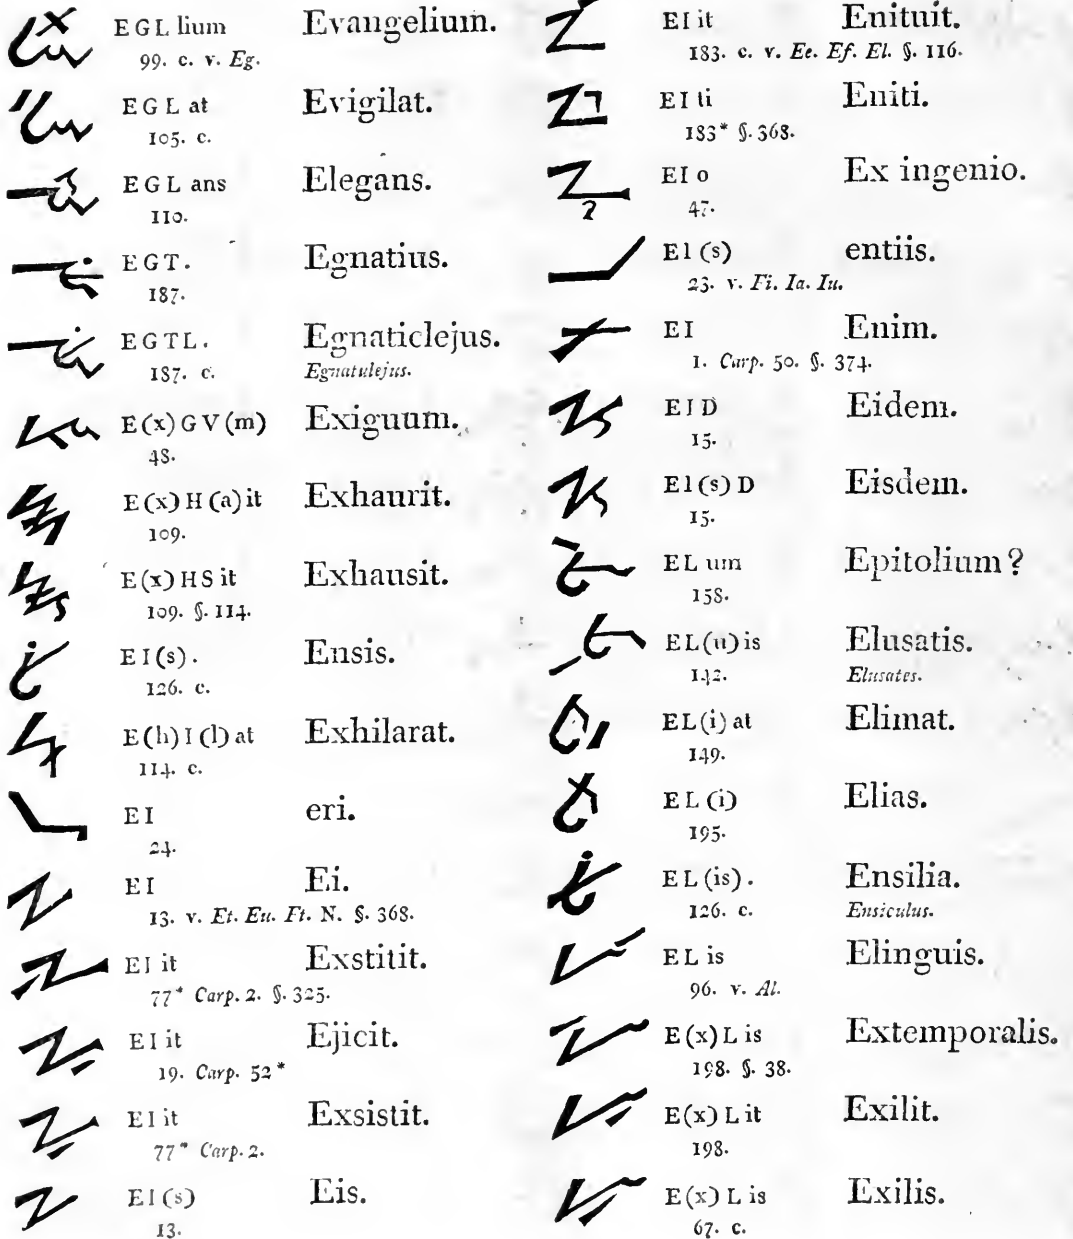 EGL lium Evangelium.
99. c. v. Eg.
EGL at Evigilat.
105. c.
EGL ans Elegans.
110.
EGT. Egnatius.
187.
EGTL. Egnaticlejus.
187. c. Egnatulejus.
E(x)GV(m) Exiguum.
48.
E(x)H(a)it Exhaurit.
109.
E(x)HS it Exhausit.
109. §. 114.
EI(s). Ensis.
126. c.
E(h)I(l)at Exhilarat.
114. c.
EI eri.
24.
EI Ei.
13. v. Et. Eu. Ft. N. §. 368.
EI it Exstitit.
77* Carp. 2. §. 325.
EI it Ejicit.
19. Carp. 52*
EI it Exsistit.
77* Carp. 2.
EI(s) Eis.
13.
EI it Enituit.
183. c. v. Ee. Ef. El. §. 116.
EI ti Eniti.
183* §. 368.
EI o Ex ingenio.
47.
EI(s) entiis.
23. v. Fi. Ia. Iu.
EI Enim.
1. Carp. 50. §. 374.
EID Eidem.
15.
EI(s)D Eisdem.
15.
EL um Epitolium?
158.
EL(u)is Elusatis.
142. Elusates.
EL(i)at Elimat.
149.
EL(i) Elias.
195.
EL(is). Ensilia.
126. c. Ensiculus.
EL is Elinguis.
96. v. Al.
E(x)L is Extemporalis.
198. §. 38.
E(x)L it Exilit.
198.
E(x)L is Exilis.
67. c.